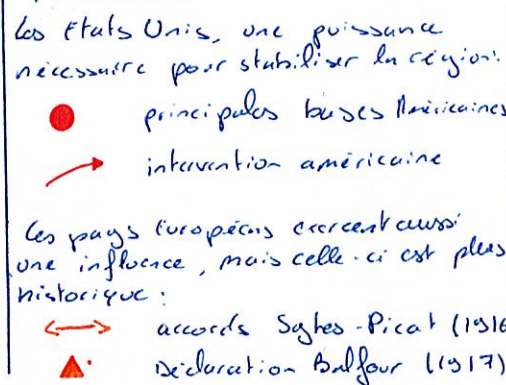 Les Etats Unis, une puissance
nécessaire pour stabiliser la région.
principales bases Américaines
intervention américaine
Les pays Européens exercent aussi
une influence, mais celle-ci est plus
historique :
accords Sykes-Picat (1916
Déclaration Balfour (1917)